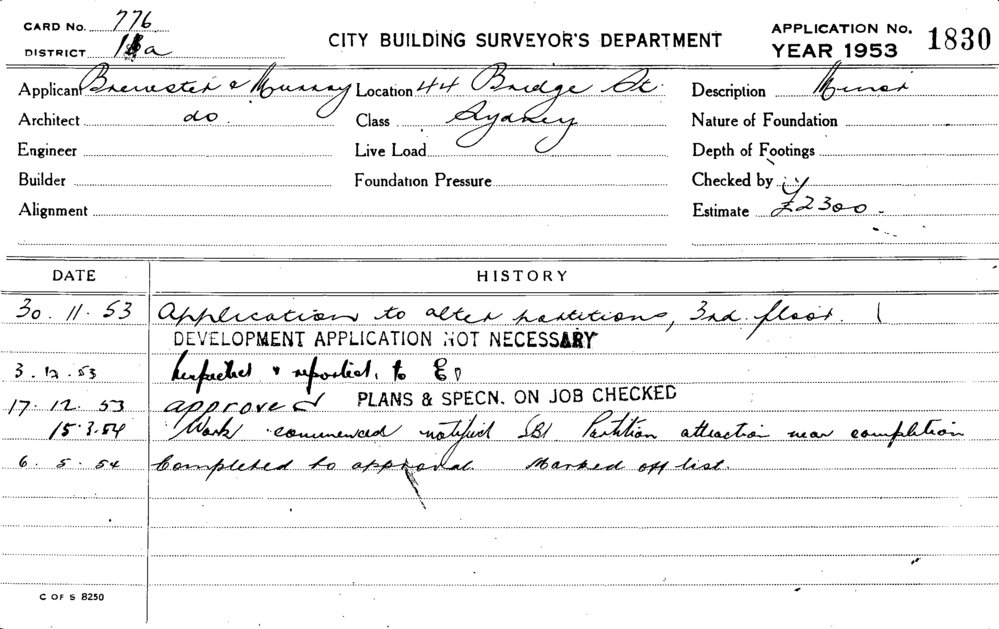 CARD No. 776
DISTRICT a
CITY BUILDING SURVEYOR'S DEPARTMENT
APPLICATION No.
YEAR 1953
1830
Applicant Brewster & Murray Location 44 Bridge St. Description Minor
Architect do. Class Sydney Nature of Foundation
Engineer Live Load Depth of Footings
Builder Foundation Pressure Checked by
Alignment Estimate £2300.
DATE HISTORY
30. 11. 53 Application to alter partitions, 3rd. floor.
DEVELOPMENT APPLICATION NOT NECESSARY
3. 12. 53 Inspected & reported, to
17. 12. 53 approved PLANS & SPECN. ON JOB CHECKED
15.3.54 Work commenced notified SBI Partition near completion
6. 5. 54 Completed to approval. Marked off list.
C OF S 8250